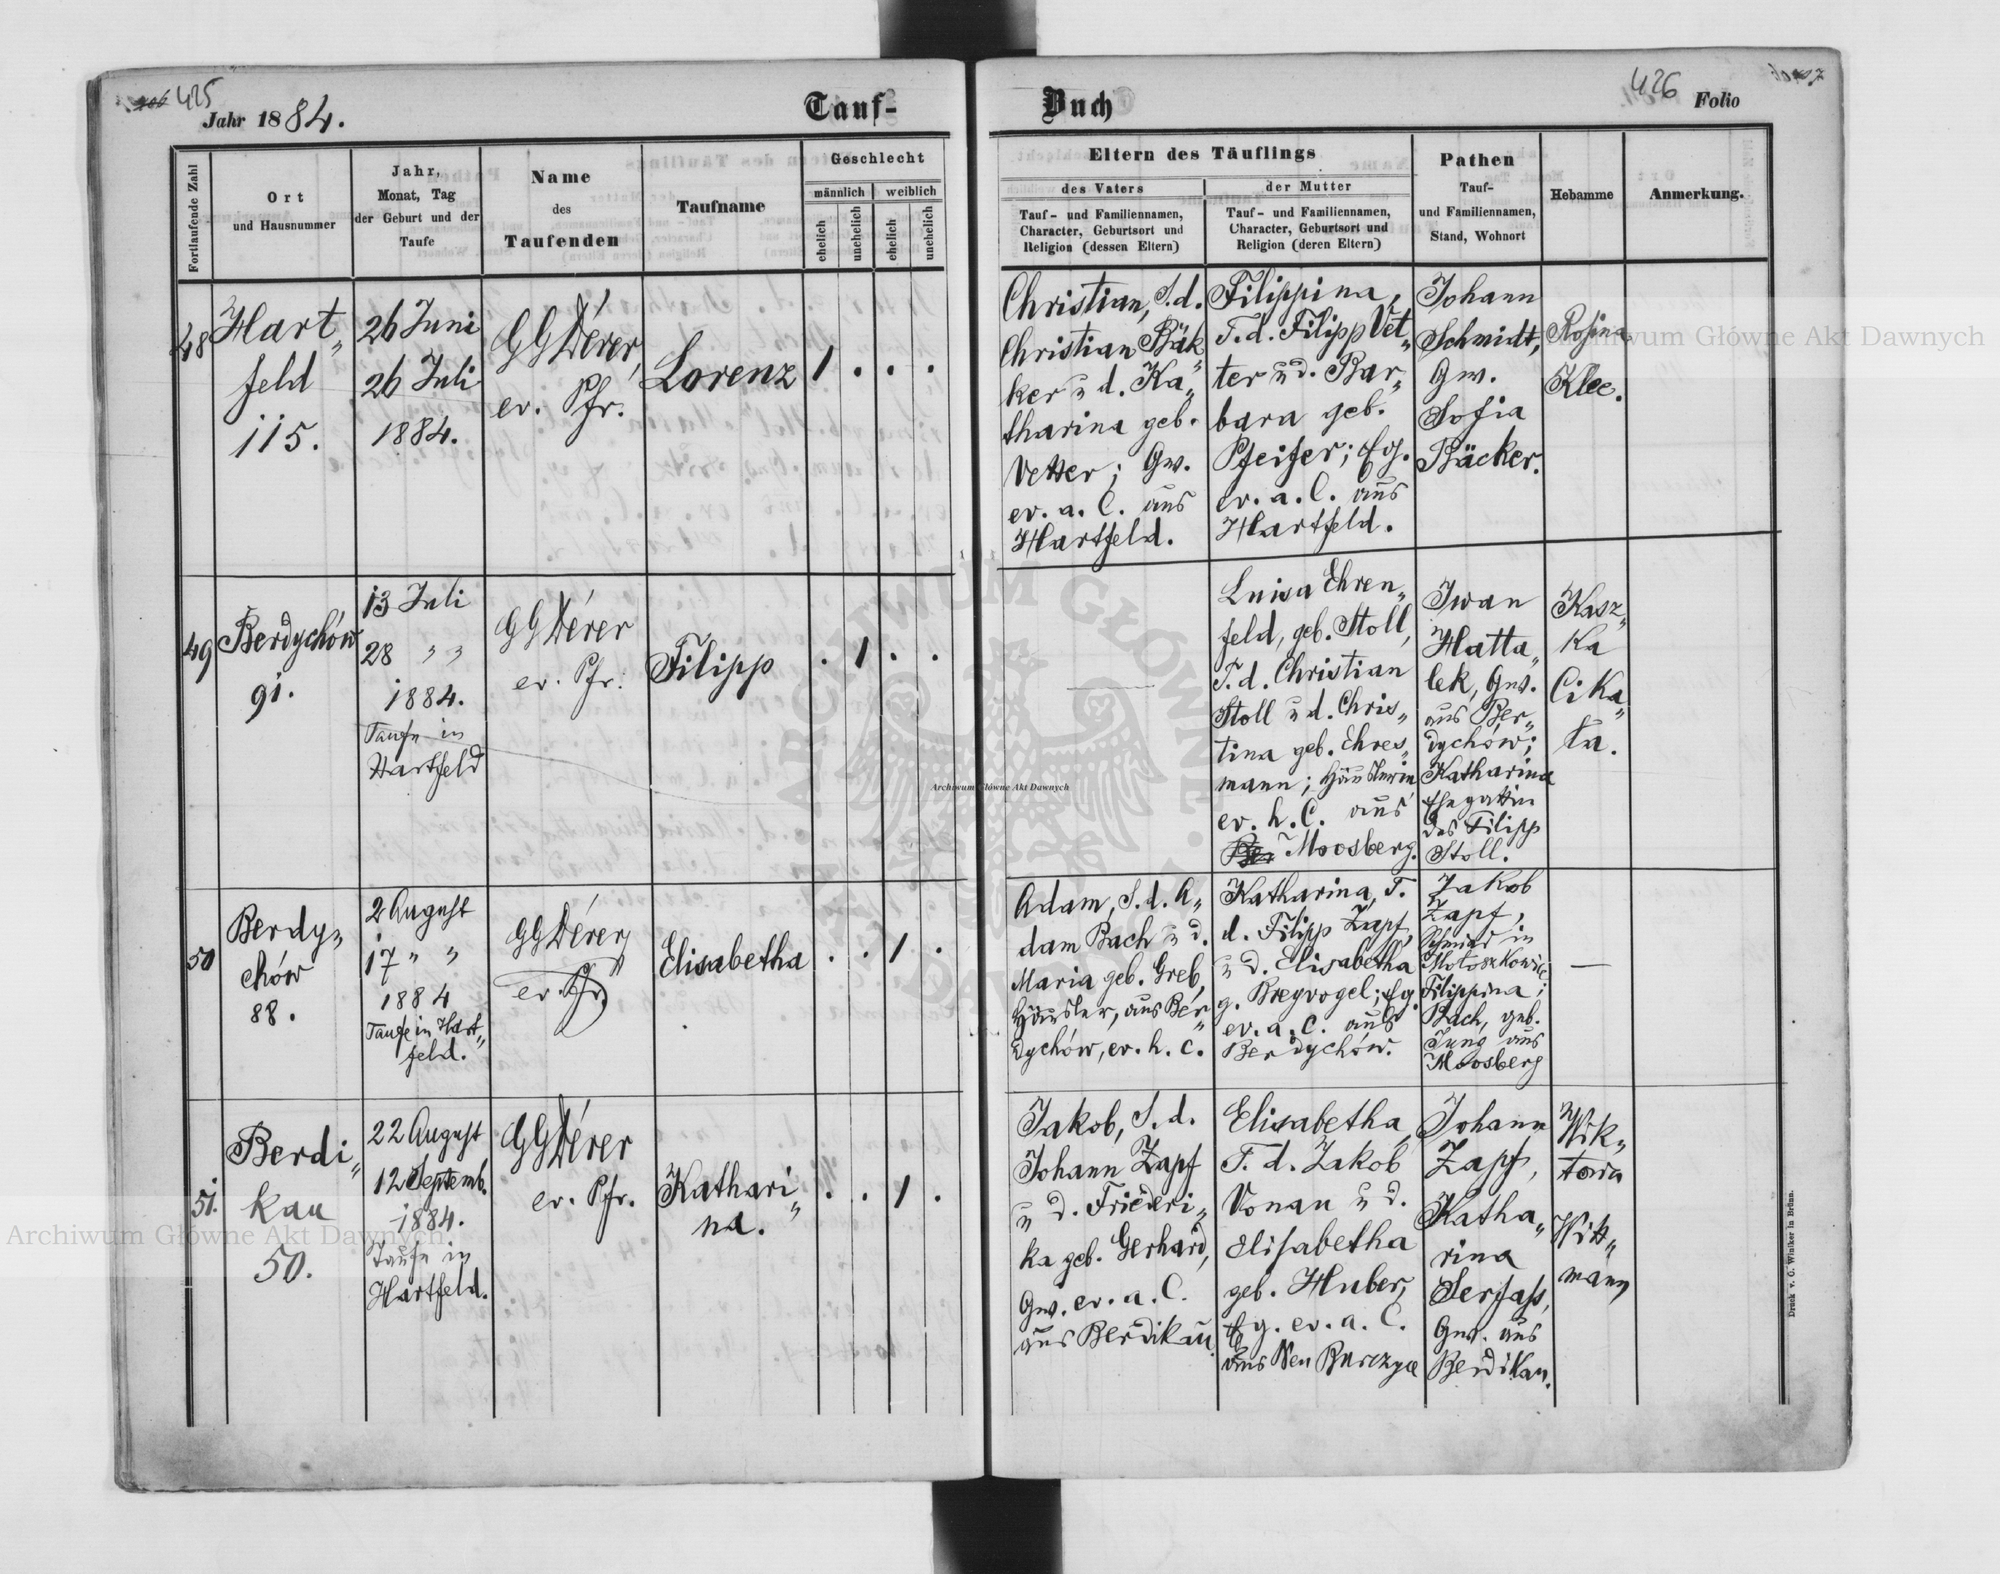 425
Jahr 1884.
Tauf-
Buch
426
Folio
Fortlaufende Zahl
Ort
und Hausnummer
Jahr,
Monat, Tag
der Geburt und der
Taufe
Name
des
Taufenden
Taufname
Geschlecht
männlich
weiblich
ehelich
unehelich
ehelich
unehelich
Eltern des Täuflings
des Vaters
der Mutter
Tauf- und Familiennamen,
Character, Geburtsort und
Religion (dessen Eltern)
Tauf- und Familiennamen,
Character, Geburtsort und
Religion (deren Eltern)
Pathen
Tauf-
und Familiennamen,
Stand, Wohnort
Hebamme
Anmerkung.
48
Hart„
feld
115.
26 Juni
26 Juli
1884.
GGDérer,
ev. Pfr.
Lorenz
1 . . .
Christian, S. d.
Christian Bäk„
ker u d. Ka„
tharina geb.
Vetter; Gw.
ev. a. C. aus
Hartfeld.
Filippina,
T. d. Filipp Vet„
ter u d. Bar„
bara geb.
Pfeifer; Eg.
ev. a. C. aus
Hartfeld.
Johann
Schmidt,
Gw.
Sofia
Bäcker.
Rosina
Klee.
49
Berdychów
91.
13 Juli
28 " "
1884.
Taufe in
Hartfeld
GGDérer
ev. Pfr.
Filipp
. 1 . .
Luisa Ehren„
feld, geb. Stoll,
T. d. Christian
Stoll u d. Chris„
tina geb. Ehres„
mann; Häuslerin
ev. h. C. aus
Ber Moosberg.
Iwan
Hatta„
lek, Gw.
aus Ber„
dychów;
Katharina
Ehegattin
des Filipp
Stoll.
Kasz„
ka
Cika„
ta.
50
Berdy„
chów
88.
2 August
17 " "
1884
Taufe in Hart„
feld.
GGDérer
ev. Pfr.
Elisabetha
. . 1 .
Adam, S. d. A„
dam Bach u d.
Maria geb. Greb,
Häusler, aus Ber„
dychów, ev. h. C.
Katharina, T.
d. Filipp Zapf,
u d. Elisabetha
g. Breyvogel; Eg.
ev. a. C. aus
Berdychów.
Jakob
Zapf,
Schmid in
Filippina;
Bach, geb.
Jung aus
Moosberg
—
51.
Berdi„
kau
50.
22 August
12 Septemb.
1884.
Taufe in
Hartfeld.
GGDérer
ev. Pfr.
Kathari„
na.
. . 1 .
Jakob, S. d.
Johann Zapf
u d. Friederi„
ka geb. Gerhard,
Gw. ev. a. C.
aus Berdikau.
Elisabetha,
T. d. Jakob
Vonau u d.
Elisabetha
geb. Huber,
Eg. ev. a. C.
aus Neu Burczyce
Johann
Zapf,
Katha„
rina
Serfass,
Gw. aus
Berdikau.
Wik„
toria
Witt„
mann
Druck v. C. Winiker in Brünn.
Archiwum Główne Akt Dawnych
Archiwum Główne Akt Dawnych
Archiwum Główne Akt Dawnych
ARCHIWUM GŁÓWNE AKT DAWNYCH